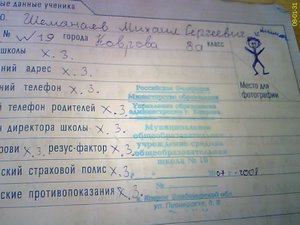 ные данные ученика
О. Шеманаев Михаил Сергеевич
№ №19 города Коврова 8а класс
школы Х.З.
ний адрес Х.З.
ний телефон Х.З.
й телефон родителей Х.З.
Место для фотографии
н директора школы Х.З.
рови Х.З. резус-фактор Х.З.
ский страховой полис Х.З.
ские противопоказания Х.З.
Российская Федерация
Министерство образования
Управление образования
администрации г. Коврова
Муниципальное
общеобразовательное
учреждение средняя
общеобразовательная
школа № 19
№
г. Ковров Владимирской обл.